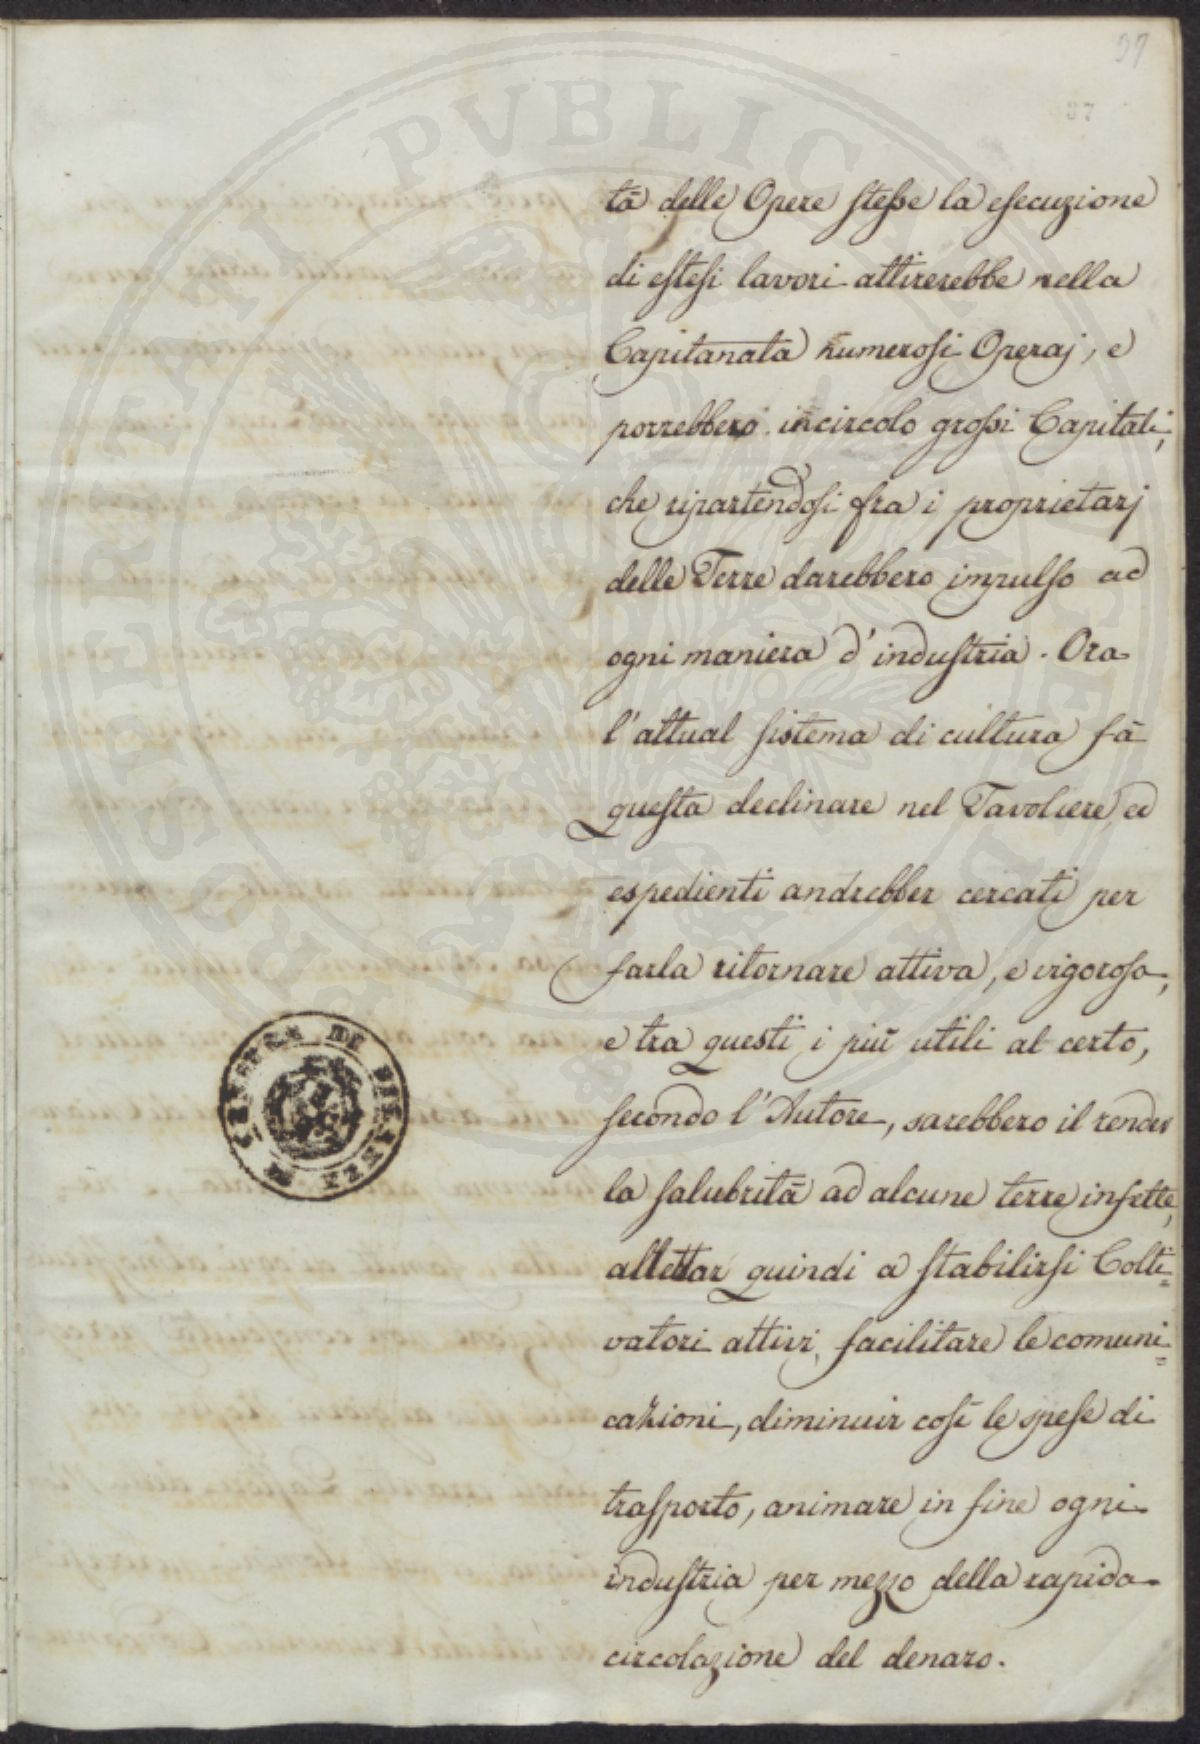 97
37
PROSPERITATI PVBLICAE
tà delle Opere stesse la esecuzione
di estesi lavori attirerebbe nella
Capitanata numerosi Operaj, e
porrebbero in circolo grossi Capitali,
che ripartendosi fra i proprietarj
delle Terre darebbero impulso ad
ogni maniera d'industria. Ora
l'attual sistema di cultura fà
questa declinare nel Tavoliere, ed
espedienti andrebber cercati per
farla ritornare attiva, e vigorosa,
e tra questi i più utili al certo,
secondo l'Autore, sarebbero il render
la salubrità ad alcune terre infette,
allettar quindi a stabilirsi Colti=
vatori attivi, facilitare le comuni=
cazioni, diminuir così le spese di
trasporto, animare in fine ogni
industria per mezzo della rapida
circolazione del denaro.